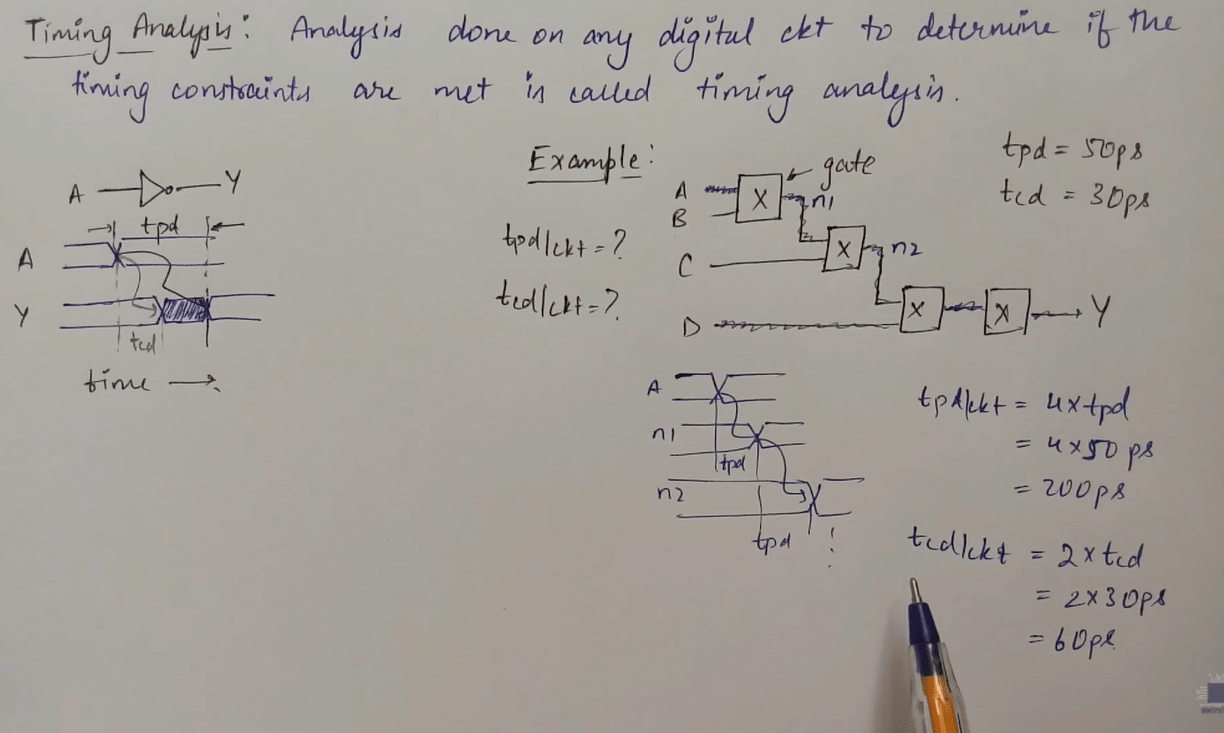 Timing Analysis: Analysis done on any digital ckt to determine if the
timing constraints are met is called timing analysis.
A Y
tpd
A
Y
tcd
time →
Example:
tpd/ckt = ?
tcd/ckt = ?
A
B
C
D
X
gate
n1
X
n2
X
X
Y
tpd = 50ps
tcd = 30ps
A
n1
tpd
n2
tpd
tpd/ckt = 4xtpd
= 4x50 ps
= 200ps
tcd/ckt = 2xtcd
= 2x30ps
= 60ps